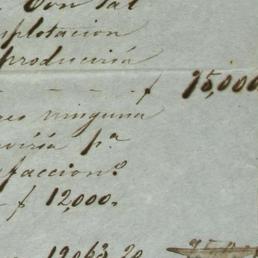 Don Tal
xplotacion
produciria
f 15,000
res ninguna
p.ª
faccion.
f 12,000.
12063,20